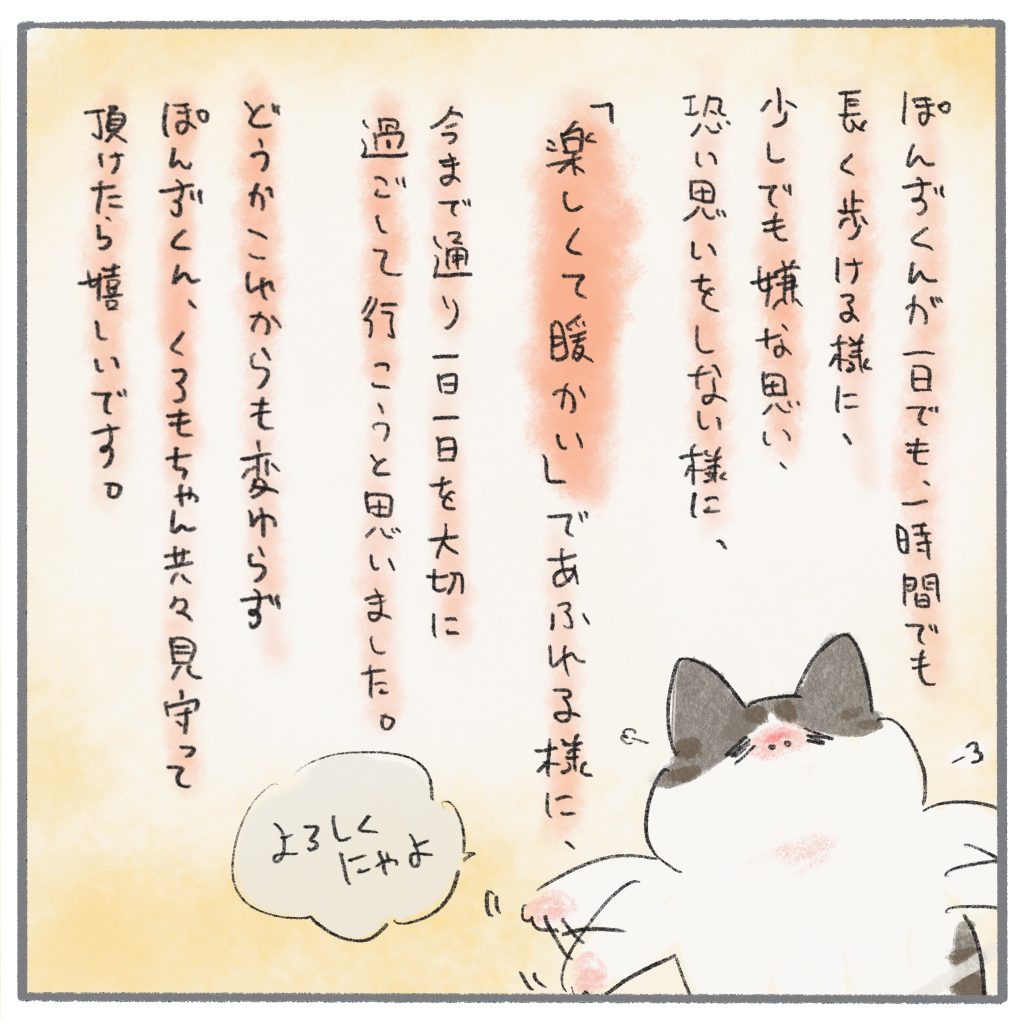 ぽんずくんが一日でも、一時間でも
長く歩ける様に、
少しでも嫌な思い、
恐い思いをしない様に、
「楽しくて暖かい」であふれる様に、
今まで通り一日一日を大切に
過ごして行こうと思いました。
どうかこれからも変わらず
ぽんずくん、くろもちゃん共々見守って
頂けたら嬉しいです。
よろしく
にゃよ